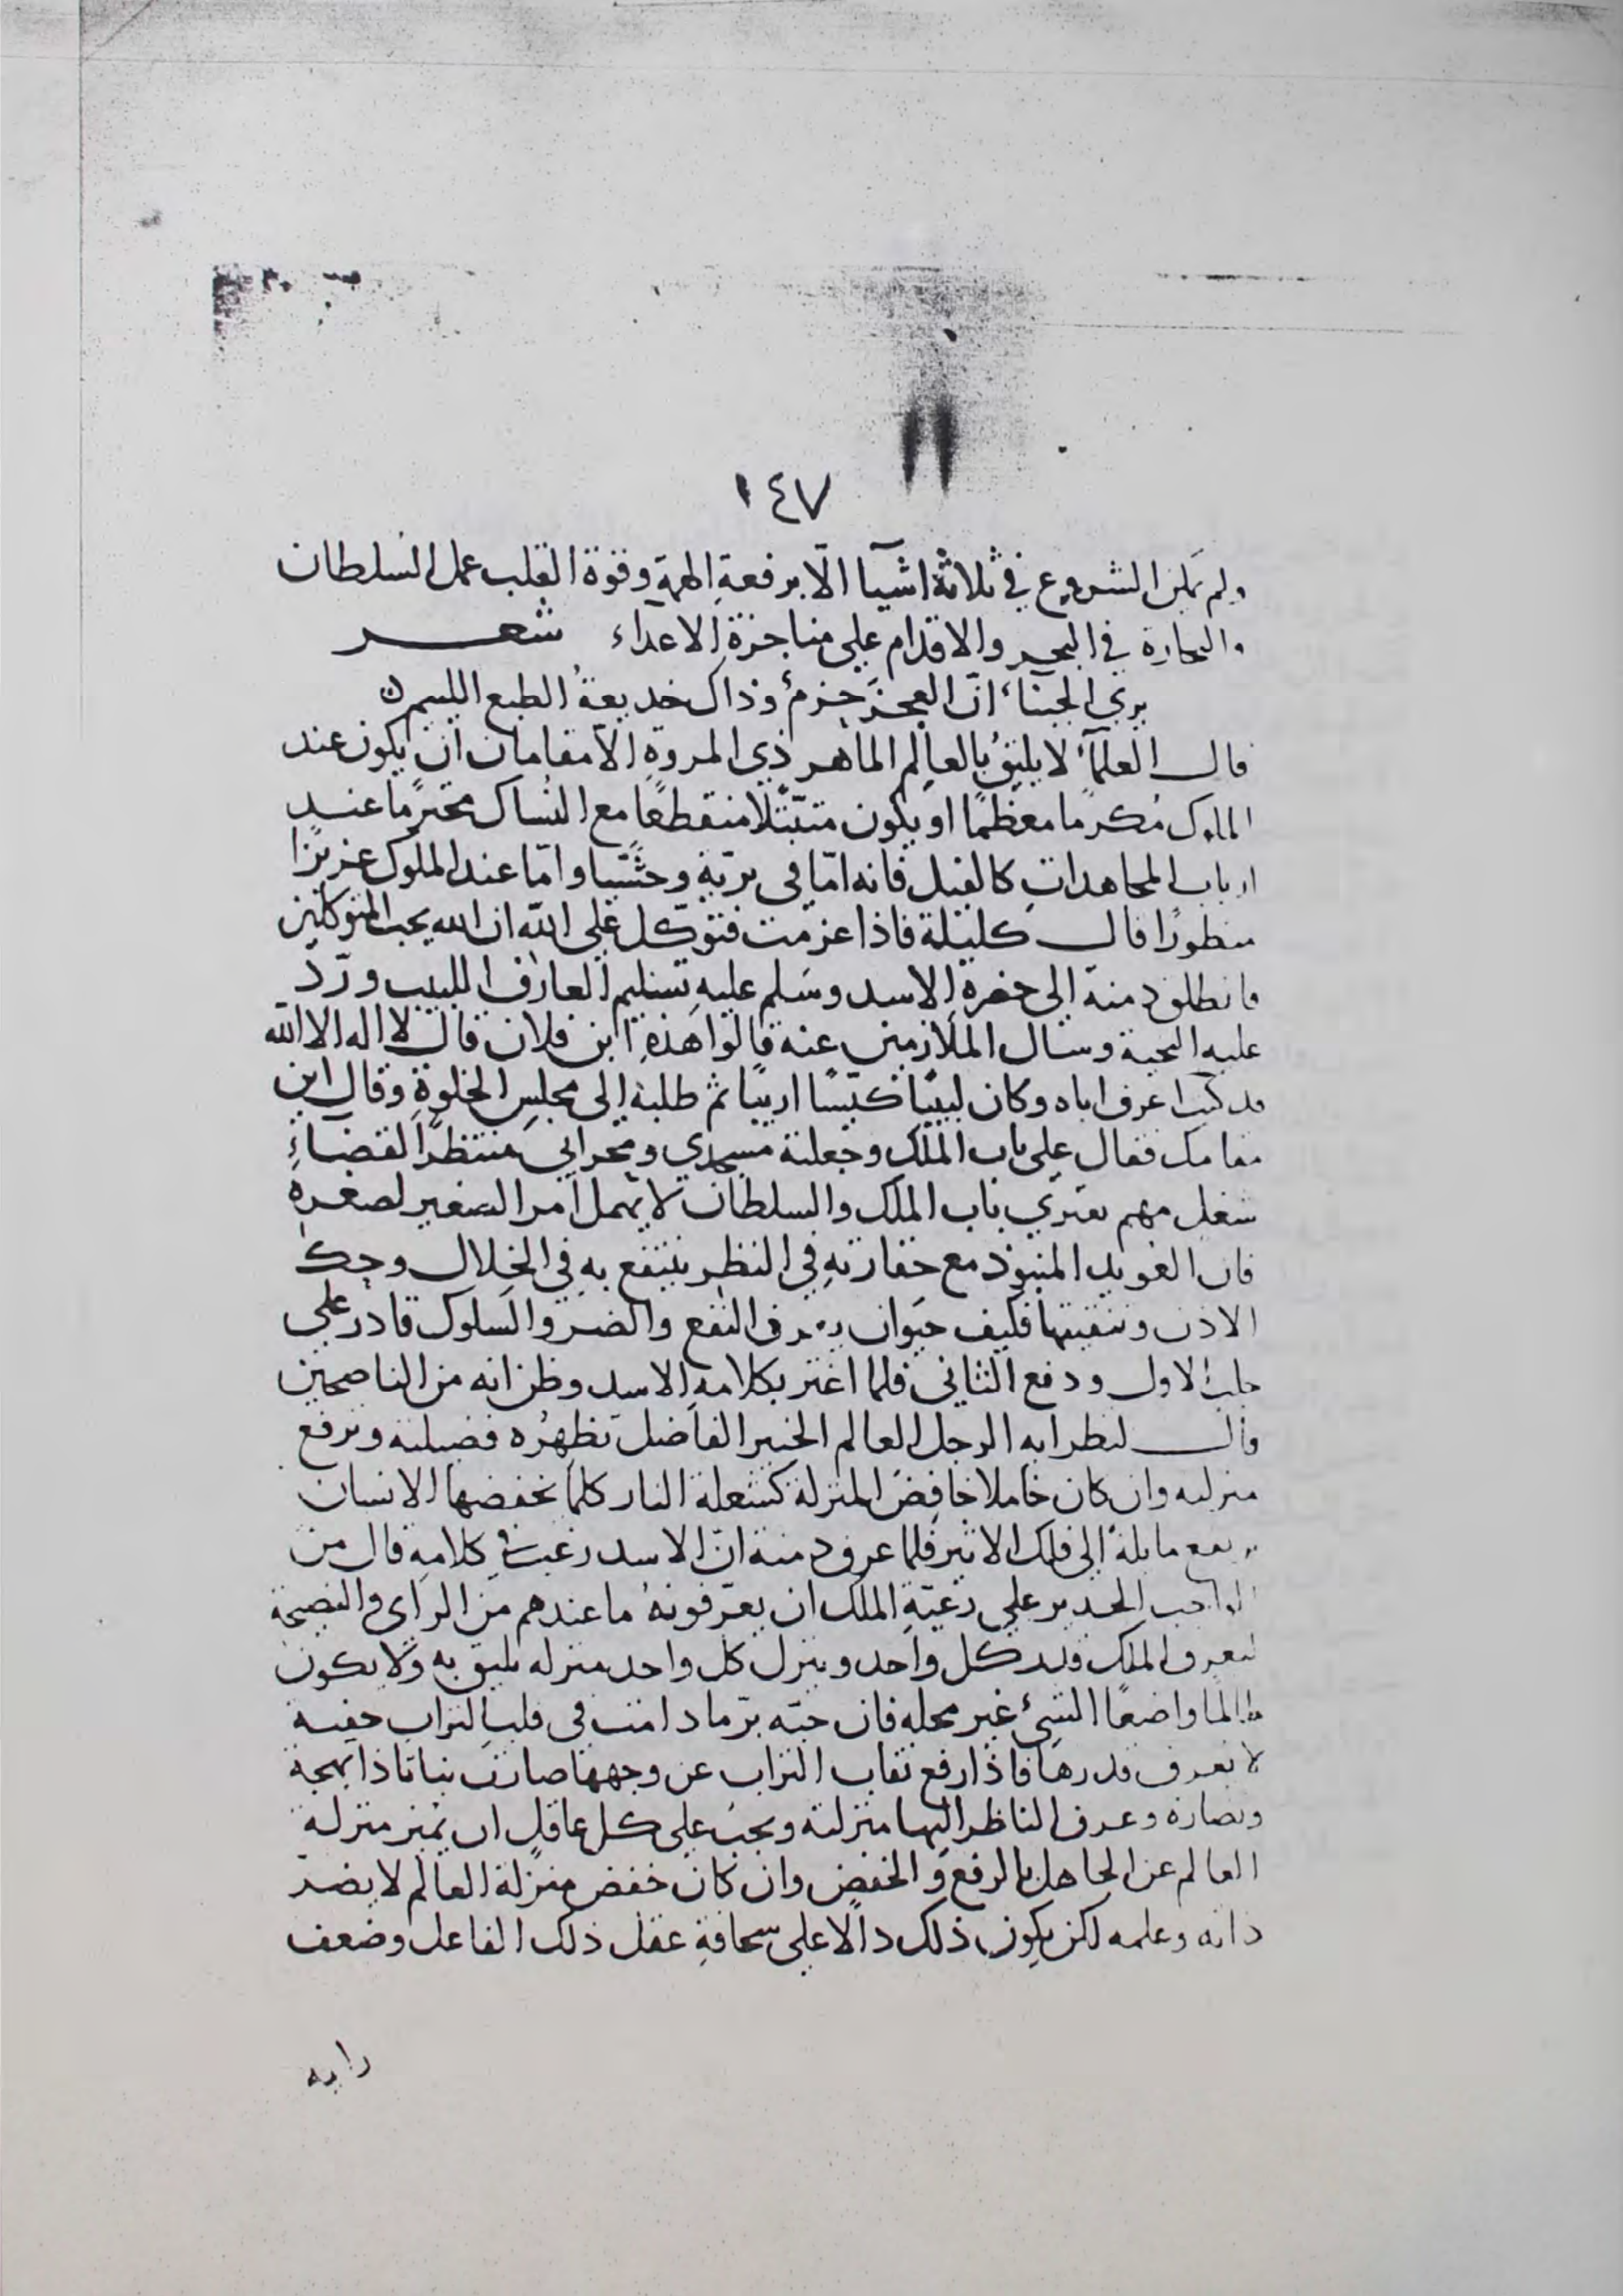 ١٤٧
ولم يمكن الشروع في ثلاثة اشيآ الّا برفعةِ الهمةِ وقوة القلب عمل السلطان
والتجارة في البحر والاقدام على مناجزةِ الاعداء شعر
يرى الجبنآء انّ العجزَ حزمٌ وذاك خديعةُ الطبع اللئيم
قال العلمآء لا يليقُ بالعالِم الماهر ذي المروةِ الّا مقامان ان يكون عند
الملوك مُكرمًا معظمًا او يكون متبتّلا منقطعًا مع النُساك محترمًا عند
ارباب المجاهدات كالفيل فانه امّا في بريّةٍ وحشيّا وامّا عند الملوك عزيزًا
منظورًا قال كليلة فاذا عزمت فتوكّل على الله ان الله يحب المتوكلين
فانطلق دمنة الى حضرةِ الاسد وسَلم عليهِ تسليم العارف اللبيب وردّ
عليه التحية وسال الملازمين عنه قالوا هذا ابن فلان قال لا اله الا الله
قد كنت اعرف اباه وكان لبيبًا كيّسًا اريبًا ثم طلبه الى مجلسِ الخلوةِ وقال اين
مقامك فقال على باب الملك وجعلته مسجدي ومحرابي منتظرًا لقضاءِ
شغل مهم يعتري بباب الملك والسلطان لا يهمل امر الصغير لصغره
فان العويد المنبوذ مع حقارتهِ في النظر ينتفع به في الخلال وحك
الاذن وتنقيتها فكيف حيوان يعرف النفع والضر والسلوك قادر على
جلب الاول ودفع الثاني فلما اغتر بكلامهِ الاسد وظن انه من الناصحين
قال لنظرايه الرجل العالم الخبير الفاضل تظهرُه فضيلته وترفع
منزلته وان كان خاملا خافضَ المنزلة كشعلة النار كلما يخفضها الانسان
ترتفع مايلةً الى فلك الاثير فلما عرف دمنة انّ الاسد رغب في كلامهِ قال من
الواجب الجدير على رعيّةِ الملك ان يعرّفونهُ ما عندهم من الراى والنصيحة
ليعرف الملك قدر كل واحد وينزل كل واحد منزله يليق به ولا يكون
ظالمًا واضعًا الشيءَ غير محله فان حبّه برّ ما دامت في قلب التراب خفية
لا يعرف قدرها فاذا رفع نقاب التراب عن وجهها صارت نباتا ذا بهجة
ونضارة وعرف الناظر اليها منزلته ويجبُ على كل عاقلٍ ان يميز منزلة
العالم عن الجاهل بالرفع والخفض وان كان خفض منزلة العالم لا يضرّ
ذاته وعلمه لكن يكون ذلك دالًا على سخافةِ عقل ذلك الفاعل وضعف
رايه